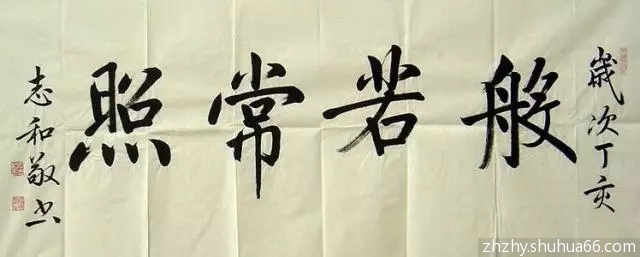 歲次丁亥
般若常照
志和敬书
zhzhy.shuhua66.com